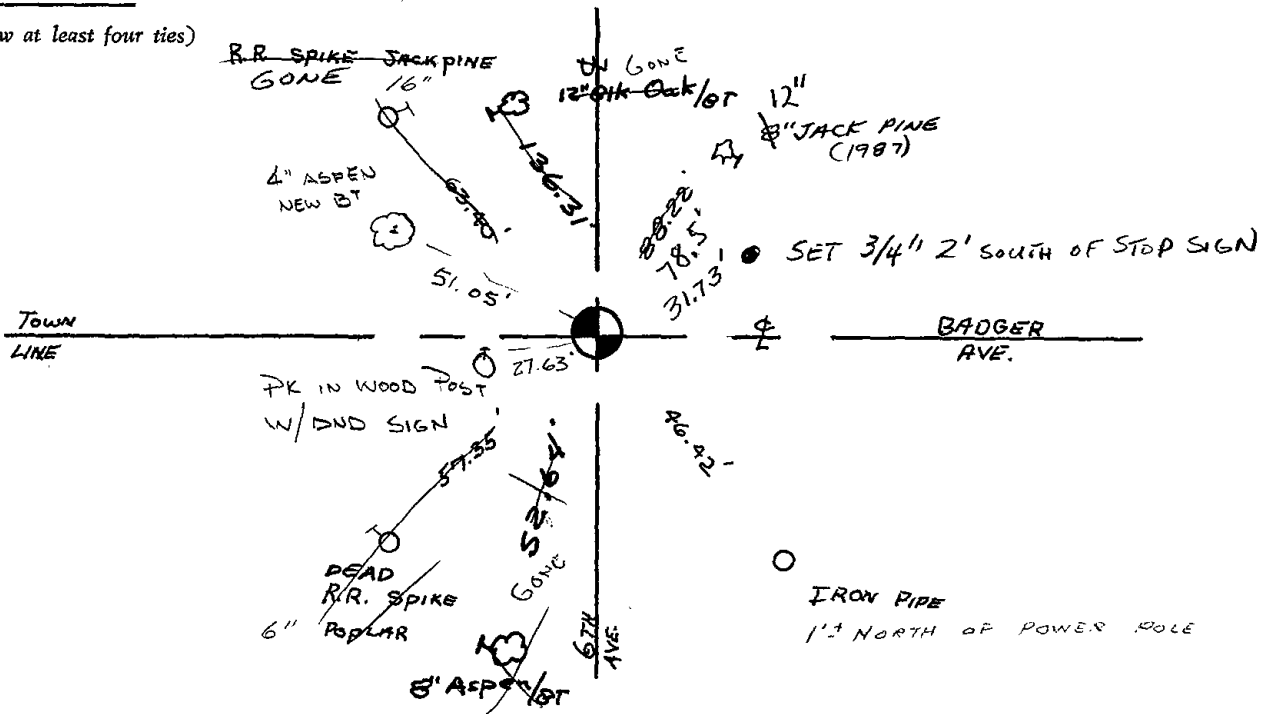 w at least four ties)
R.R. SPIKE JACKPINE
GONE
16"
GONE
12" Blk Oak/BT
12"
8" JACK PINE
(1987)
4" ASPEN
NEW BT
63.40'
136.31'
88.22'
78.5'
31.73'
SET 3/4" 2' SOUTH OF STOP SIGN
51.05'
TOWN
LINE
BADGER
AVE.
27.63'
PK IN WOOD POST
W/ DND SIGN
57.35'
52.64'
46.42'
GONE
DEAD
R.R. SPIKE
6" POPLAR
6TH
AVE.
IRON PIPE
1'± NORTH OF POWER POLE
8" Aspen/BT